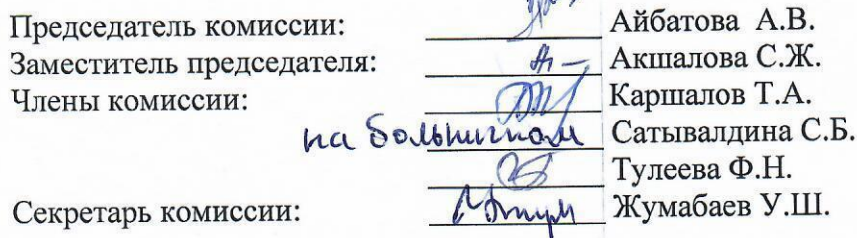 Председатель комиссии: Айбатова А.В.
Заместитель председателя: Акшалова С.Ж.
Члены комиссии: Каршалов Т.А.
на больничном Сатывалдина С.Б.
Тулеева Ф.Н.
Секретарь комиссии: Жумабаев У.Ш.